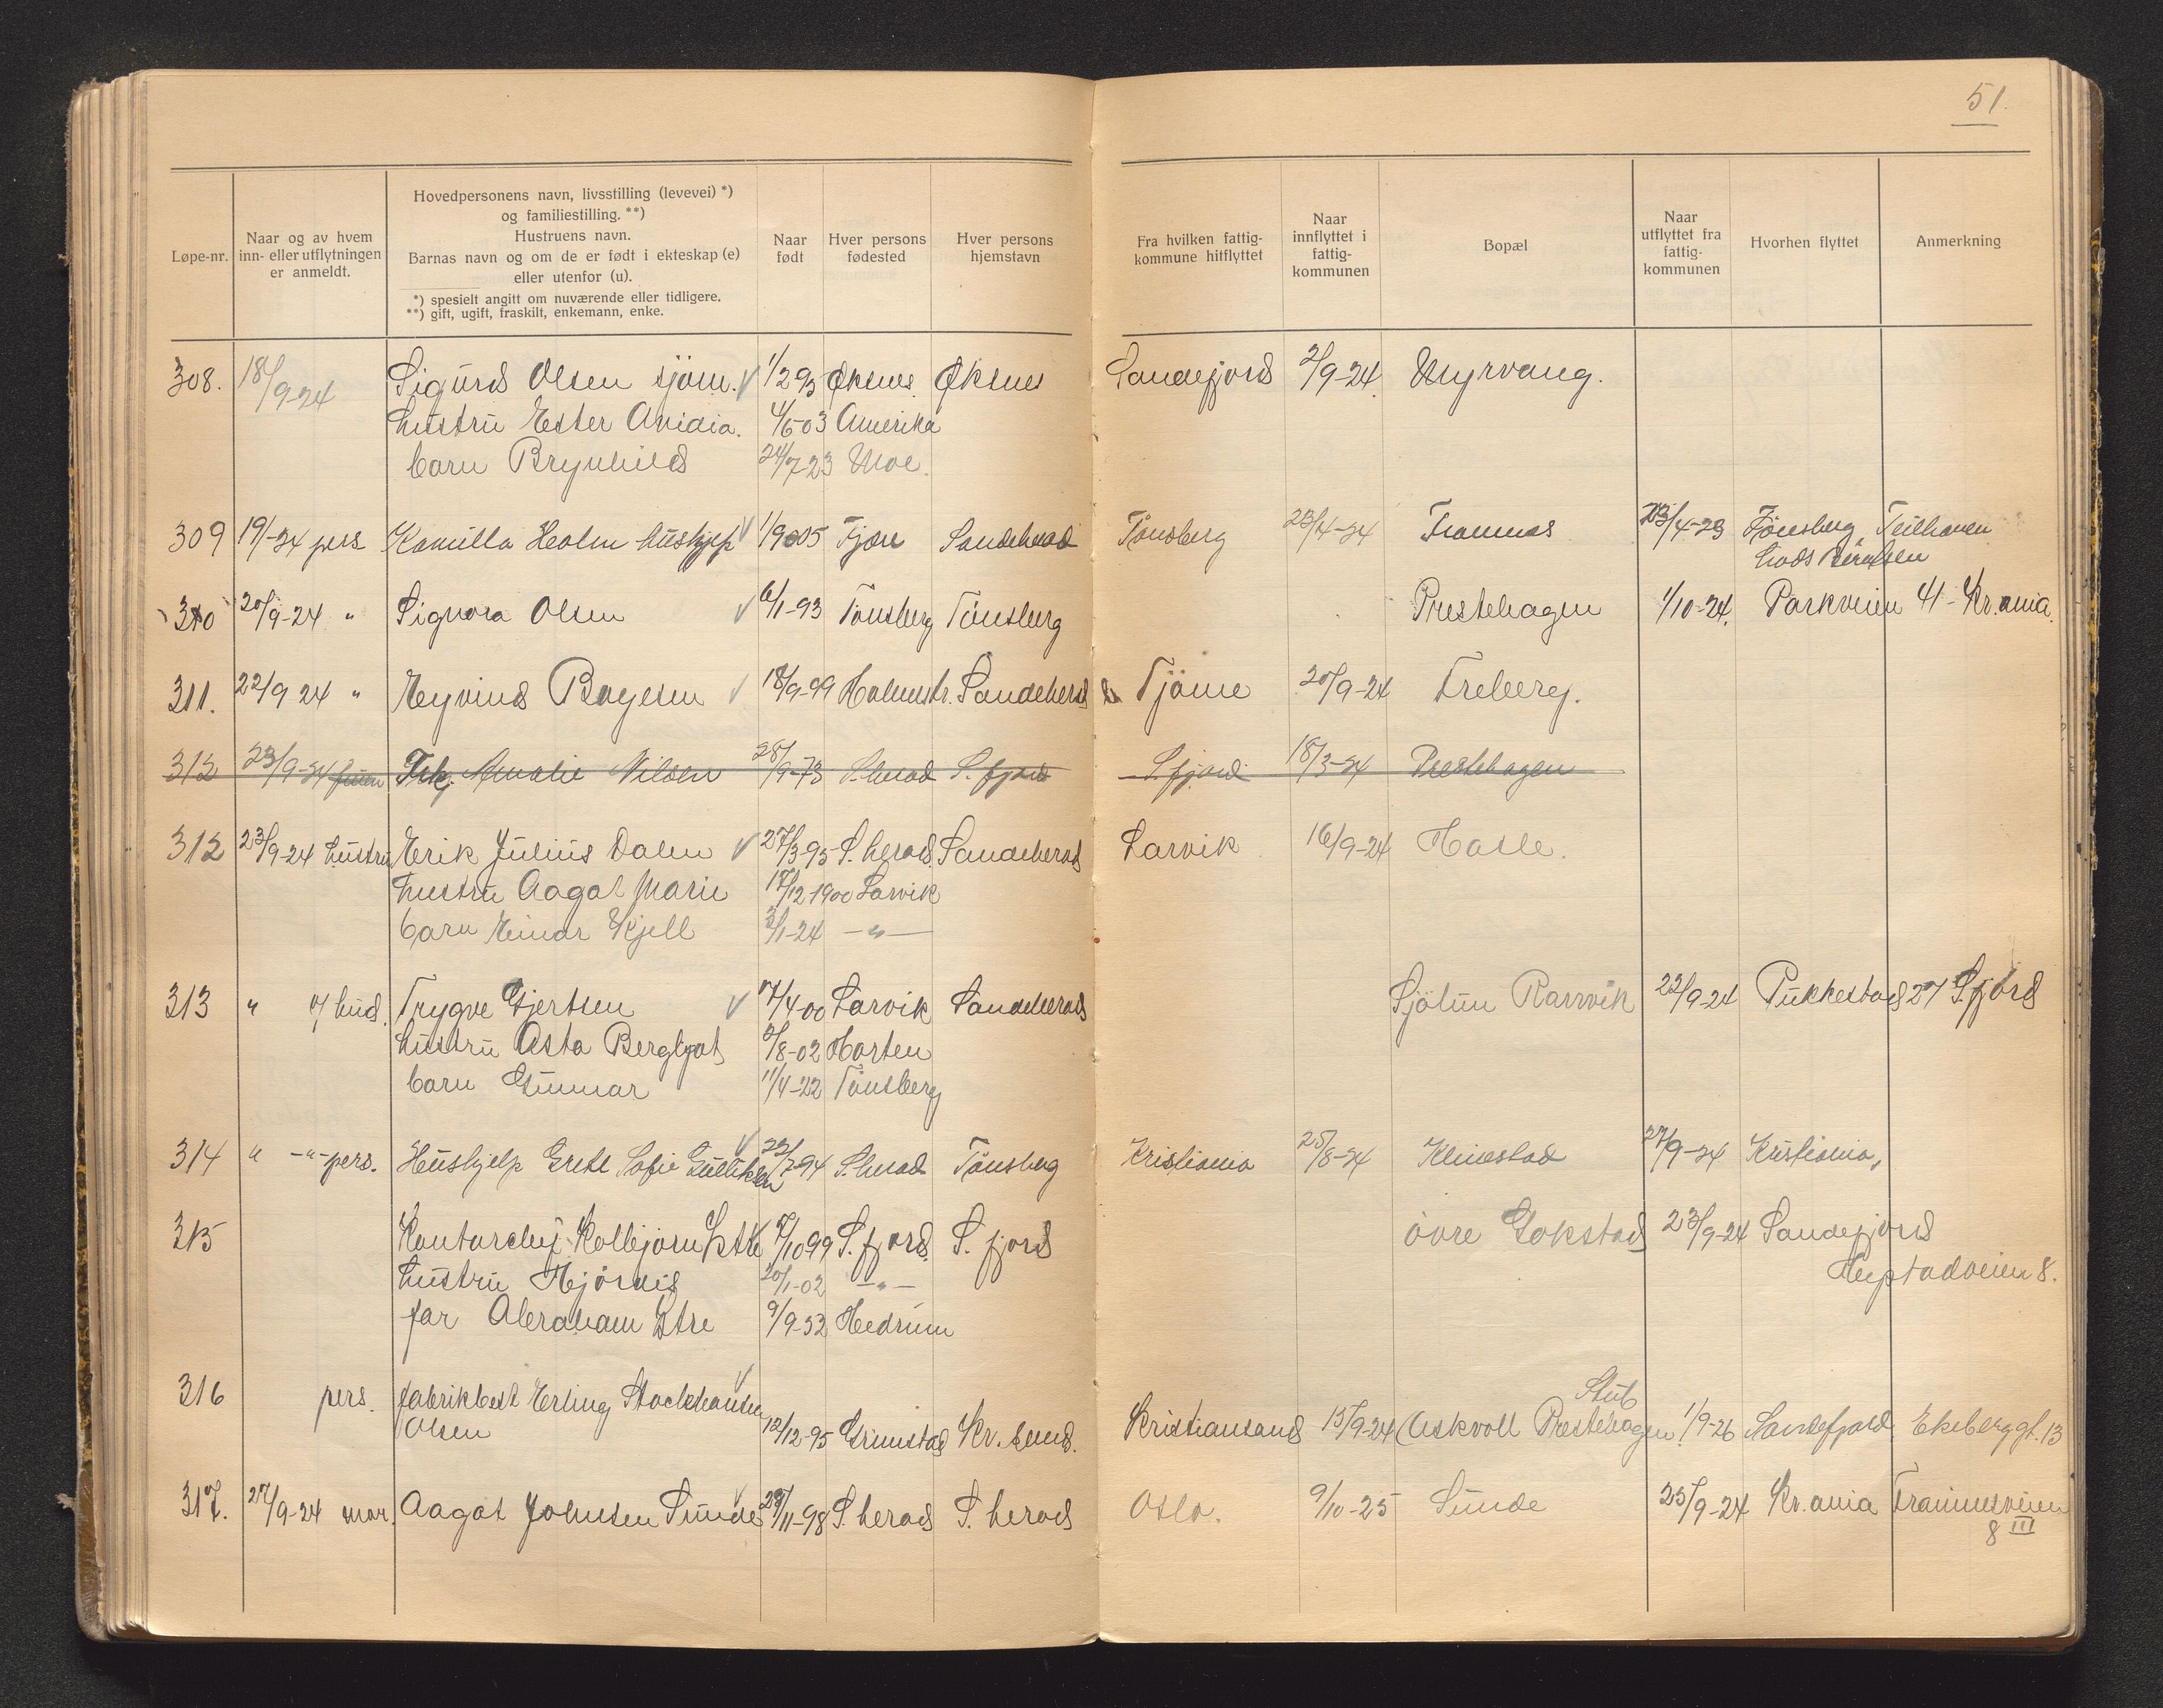 51.
Løpe-nr.
Naar og av hvem inn- eller utflytningen er anmeldt.
Hovedpersonens navn, livsstilling (levevei) *)
og familiestilling. **)
Hustruens navn.
Barnas navn og om de er født i ekteskap (e)
eller utenfor (u).
*) spesielt angitt om nuværende eller tidligere.
**) gift, ugift, fraskilt, enkemann, enke.
Naar født
Hver persons fødested
Hver persons hjemstavn
Fra hvilken fattig-kommune hitflyttet
Naar innflyttet i fattig-kommunen
Bopæl
Naar utflyttet fra fattig-kommunen
Hvorhen flyttet
Anmerkning
308. 18/9-24 Sigurd Olsen sjøm. 1/2 95 Øksnes Øksnes Sandefjord 2/9-24. Myrvang.
hustru Ester Avidia. 4/6-03 Amerika
barn Brynhild 24/7-23 Moe.
309 19/-24 pers Kamilla Holm hushjelp 1/9 05 Tjøre Sandeherad Tønsberg 23/4-24 Framnes 23/4-23 Tønsberg Teilhaven
hods Berntsen
310 20/9-24 " Signora Olsen 6/1-93 Tønsberg Tønsberg Prestehagen 1/10-24. Parkveien 41 - Kr.ania.
311. 22/9 24 " Eyvind Bøyesen 18/9-99 Holmestr. Sandeherad Tjøme 20/9-24 Treberg.
312 23/9-24 Frk. Amalie Nilsen 28/9-73 S.herad S.fjord S.fjord 18/3-24 Prestehagen
312 23/9-24 hustru Erik Julius Dalen 27/3-95 S.herad Sandeherad Larvik 16/9-24 Hasle.
hustru Aagot Marie 17/12 1900 Larvik
barn Einar Kjell 2/1-24 -"-
313 " af hud. Trygve Gjertsen 17/4 00 Larvik Sandeherad Sjølun Ranvik 22/9-24 Pukkestad 27 S.fjord
hustru Asta Bergljot 2/8-02 Horten
barn Gunnar 11/4-22 Tønsberg
314 " -"- pers. Hushjelp Grete Sofie Gulliksen 22/7-94 S.herad Tønsberg Kristiania 25/8-24 Klinestad 27/9-24 Kristiania,
315 Kontorchef Kolbjørn Istre 7/10 99 S.fjord. S.fjord øvre Gokstad 23/9-24 Sandefjord
hustru Hjørdis 20/1-02 -"- Heystadveien 8.
far Abraham Istre 9/9-52 Hedrum
316 pers. fabrikbest Erling Stockhausen
Olsen 12/12-95 Grimstad Kr.sand. Kristiansand 15/9-24 (Askvoll Prestehagen Stub 1/9-26 Sandefjord Ekeberggt. 13
317. 27/9-24 mor. Aagot Johnsen Sunde 28/11-98 S.herad S.herad Oslo. 9/10-25 Sunde 25/9-24 Kr.ania Framnesveien
8 III